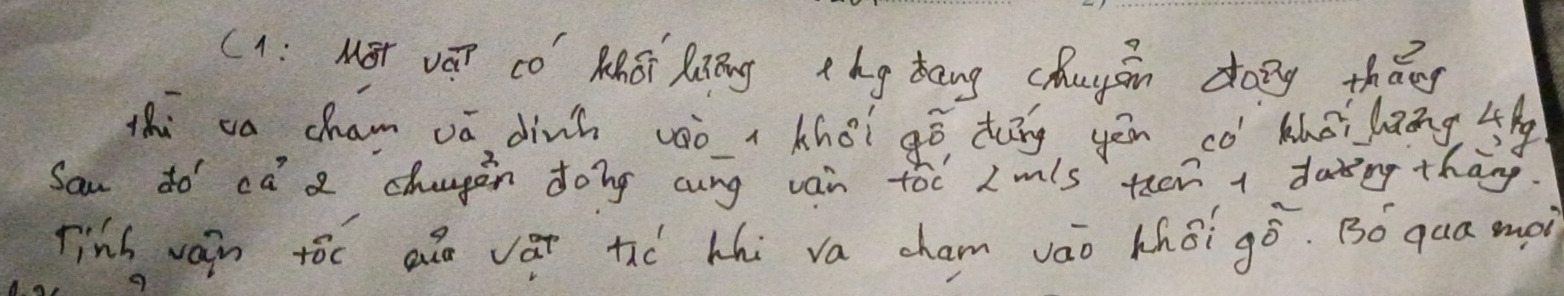 C1: Một vật có khối lượng 1 kg đang chuyển động thẳng
thì va chạm và dính vào 1 khối gỗ đứng yên có khối lượng 4kg.
Sau đó cả 2 chuyển động cùng vận tốc 2 m/s trên 1 đường thẳng.
Tính vận tốc của vật trc khi va chạm vào khối gỗ. Bỏ qua mọi